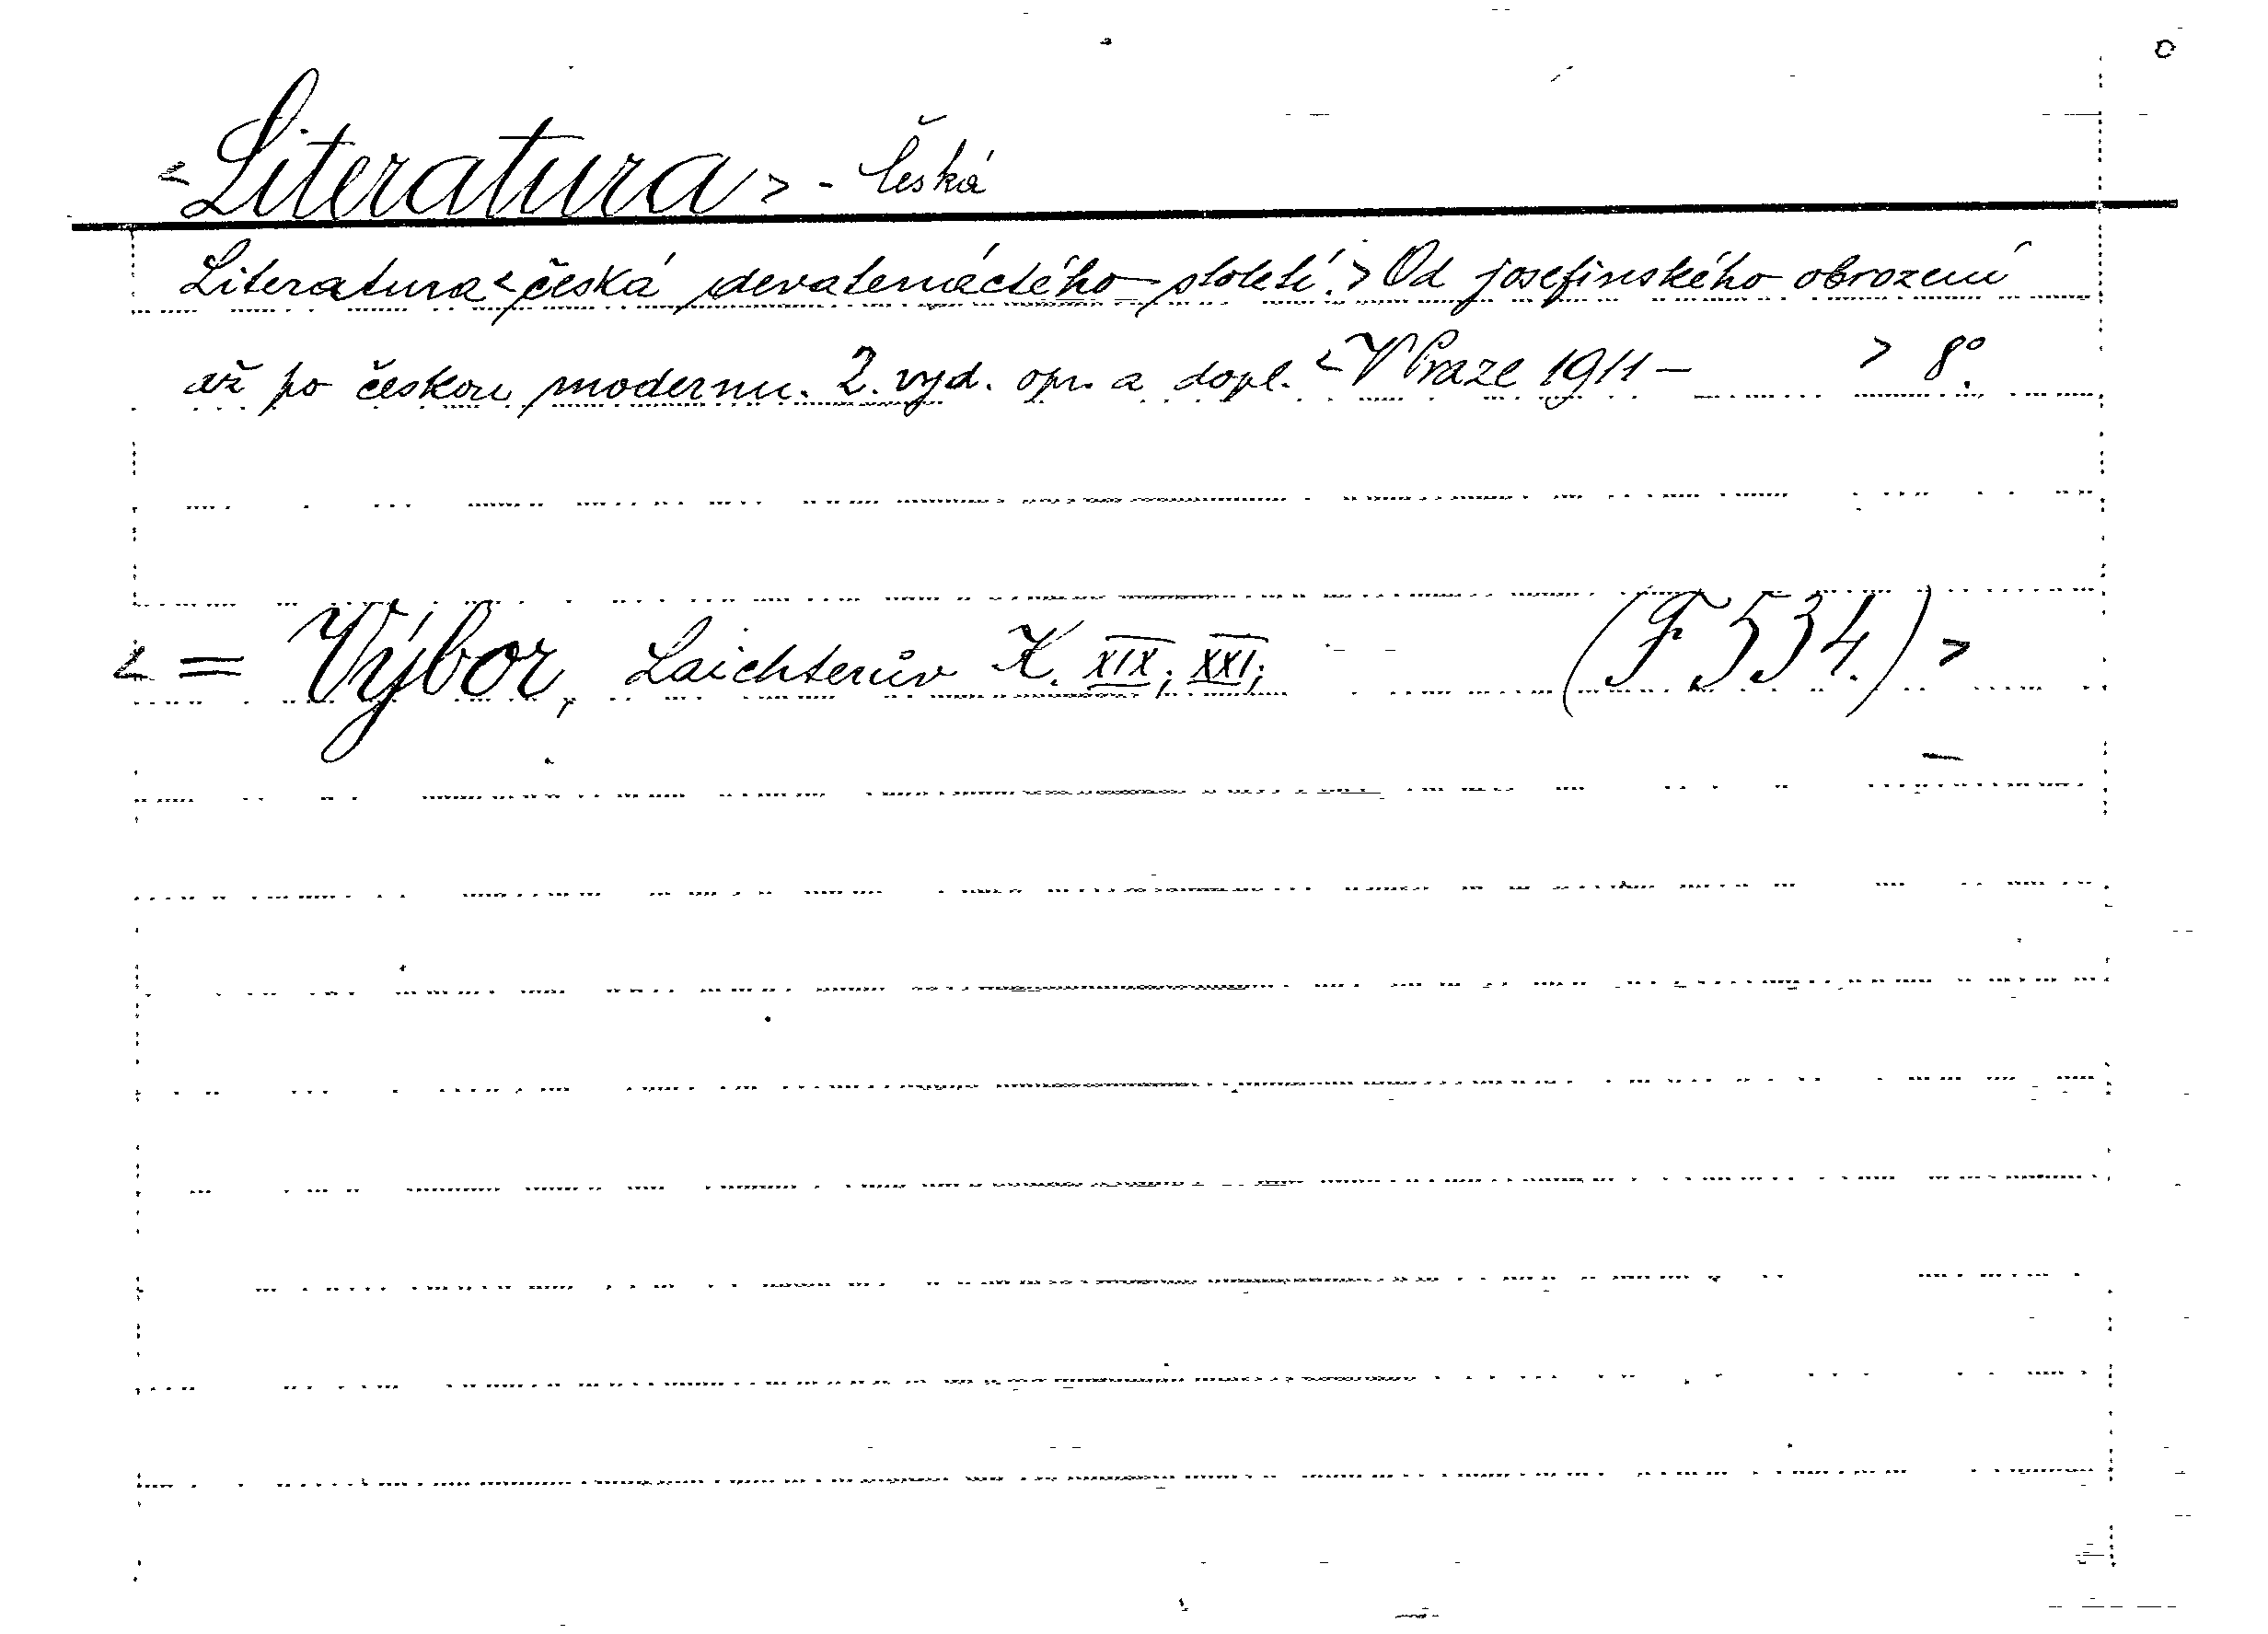 <Literatura> - česká
Literatura <česká devatenáctého století.> Od josefinského obrození
až po českou modernu. 2. vyd. opr. a dopl. <V Praze 1911 - > 8º.
< = Výbor, Laichterův K. XIX; XXI; (F 534.) >